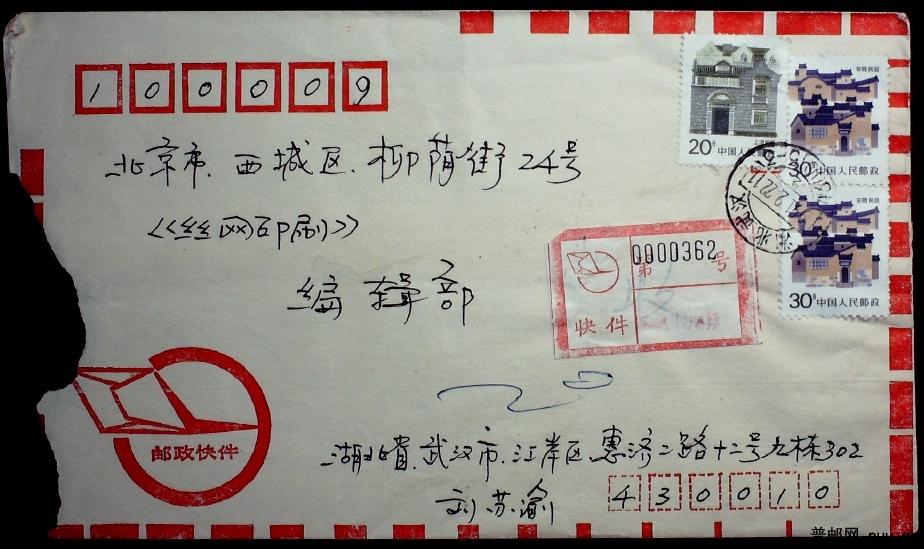 100009
北京市.西城区.柳荫街24号
《丝网印刷》
编辑部
20分 中国人民邮政
安徽民居
30分 中国人民邮政
安徽民居
30分 中国人民邮政
0000362
第 号
快件
邮政快件
湖北省.武汉市.江岸区.惠济二路十二号左栋302
刘苏渝
430010
普邮网